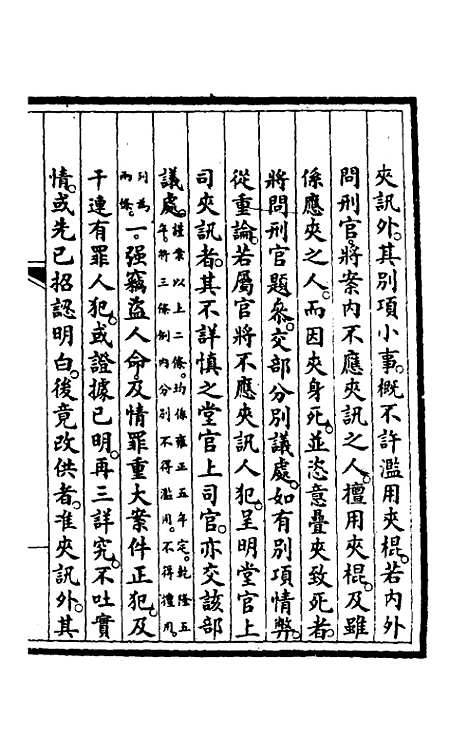 夾訊外。其別項小事。概不許濫用夾棍。若內外
問刑官。將案內不應夾訊之人。擅用夾棍。及雖
係應夾之人。而因夾身死。並恣意疊夾致死者。
將問刑官題參。交部分別議處。如有別項情弊。
從重論。若屬官將不應夾訊人犯。呈明堂官上
司夾訊者。其不詳慎之堂官上司官。亦交該部
議處。謹案以上二條。均係雍正五年定。乾隆五年。將三條例內分別不得濫用。不得擅用。列為兩條。一強竊盜人命。及情罪重大案件正犯。及
干連有罪人犯。或證據已明。再三詳究。不吐實
情。或先已招認明白。後竟改供者。准夾訊外。其